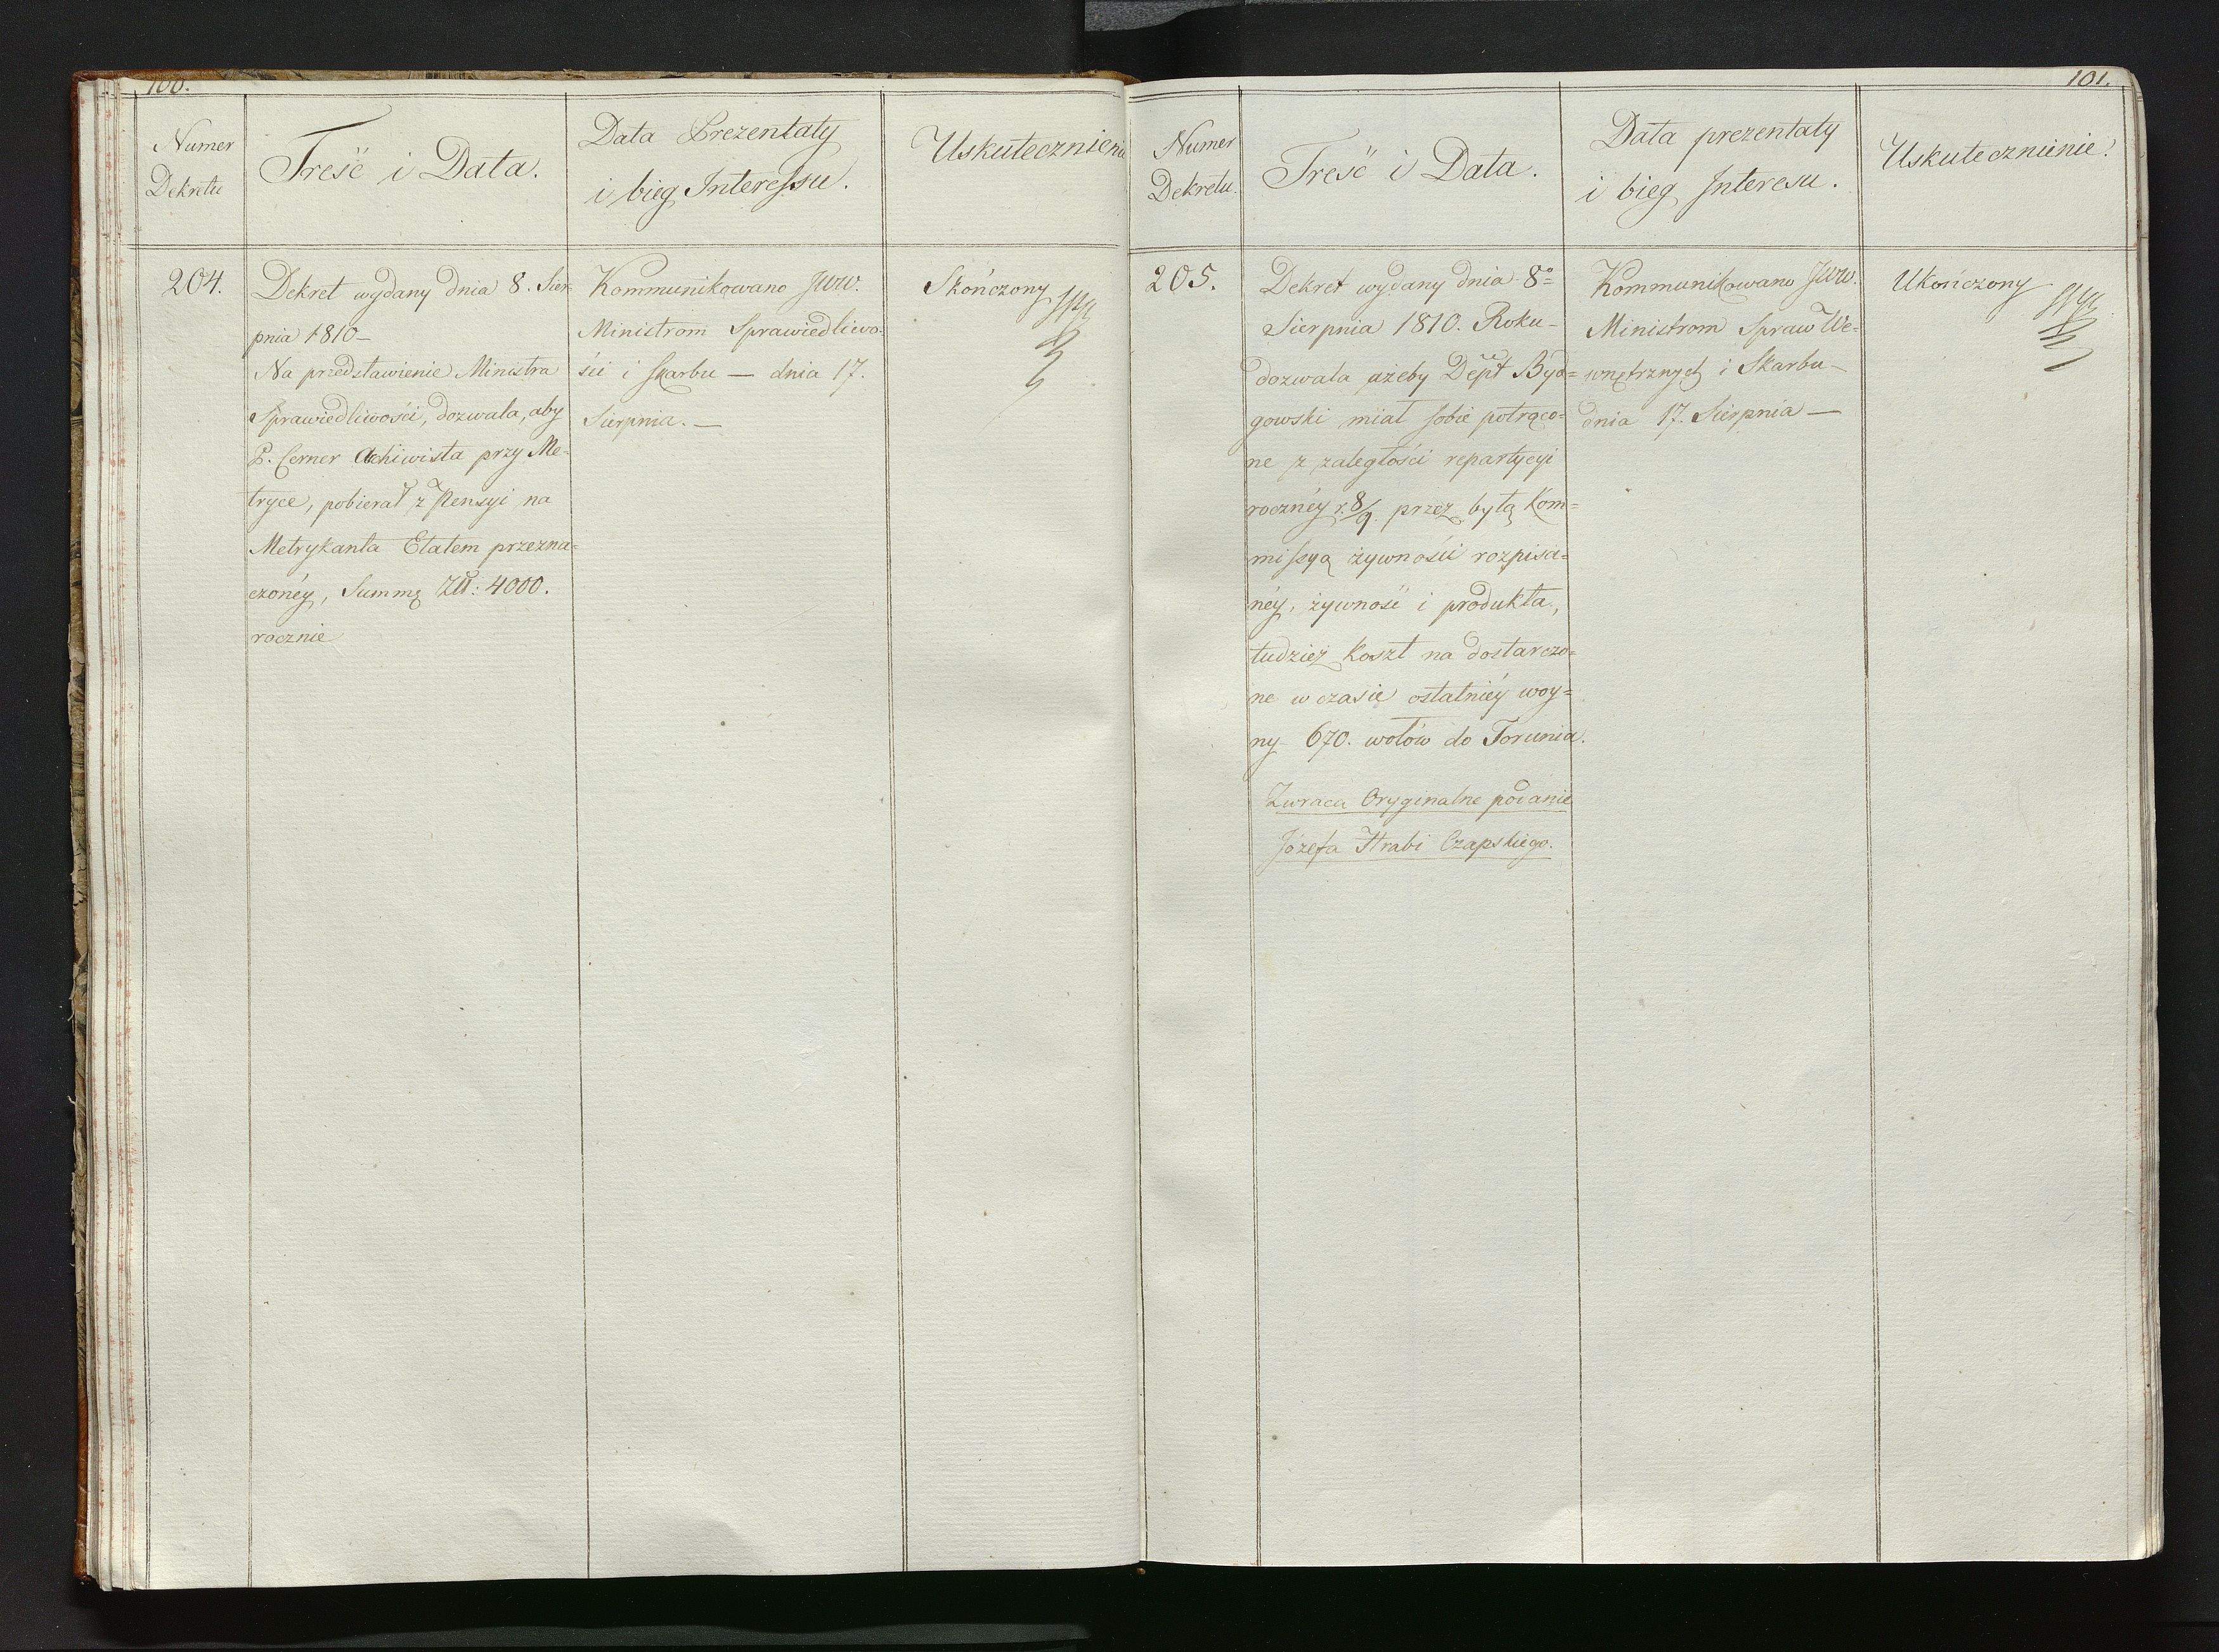 100.
Numer
Dekretu
Treść i Data.
Data Prezentaty
i bieg Interessu.
Uskutecznienie
204.
Dekret wydany dnia 8. Sier-
pnia 1810 —
Na przedstawienie Ministra
Sprawiedliwości, dozwala, aby
P. Cerner Achiwista przy Me-
tryce, pobierał z Pensyi na
Metrykanta Etatem przezna=
czonéy, Summę Złł: 4000.
rocznie
Kommunikowano JWW.
Ministrom Sprawiedliwo-
ści i Skarbu — dnia 17.
Sierpnia. —
Skończony
101.
Numer
Dekretu.
Treść i Data.
Data prezentaty
i bieg Interesu.
Uskutecznienie.
205.
Dekret wydany dnia 8º
Sierpnia 1810. Roku —
dozwala ażeby Dept Byd=
gowski miał sobie potrąco=
ne z zaległości repartycyi
rocznéy r. 8/9. przez byłą Kom=
missyą żywności rozpisa=
néy, żywność i produkta,
tudzież koszt na dostarczo=
ne w czasie ostatniéy woy=
ny 670. wołów do Torunia.
Zwraca Oryginalne podanie
Józefa Hrabi Czapskiego.
Kommunikowano JWW.
Ministrom Spraw We=
wnętrznych i Skarbu —
dnia 17. Sierpnia —
Ukończony